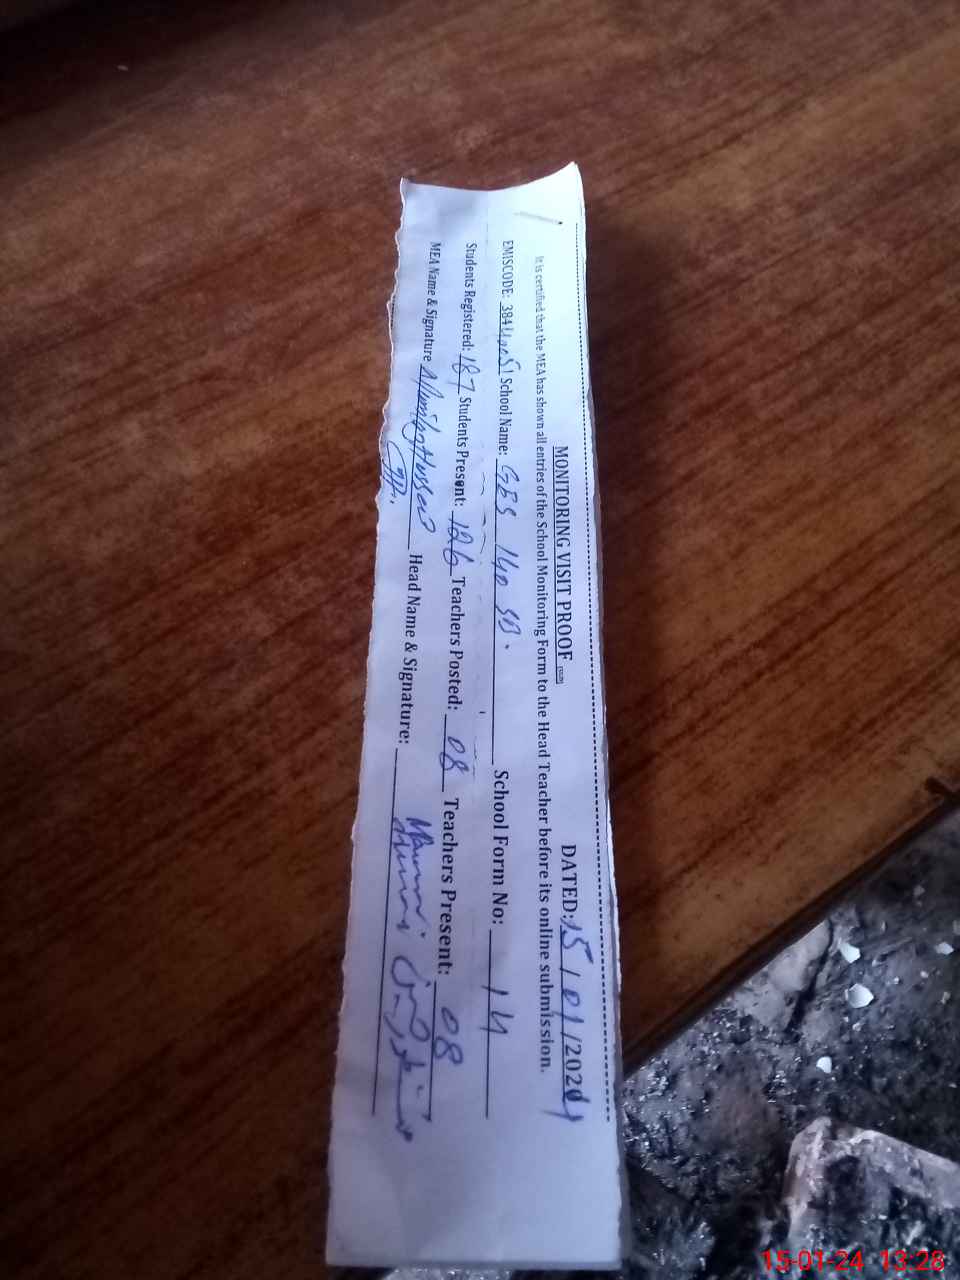 MONITORING VISIT PROOF DATED: 15/01/2024
It is certified that the MEA has shown all entries of the School Monitoring Form to the Head Teacher before its online submission.
EMISCODE: School Name: GES 140 SB. School Form No: 14
Students Registered: 187 Students Present: 126 Teachers Posted: 08 Teachers Present: 08
MEA Name & Signature Head Name & Signature:
15-01-24 13:28